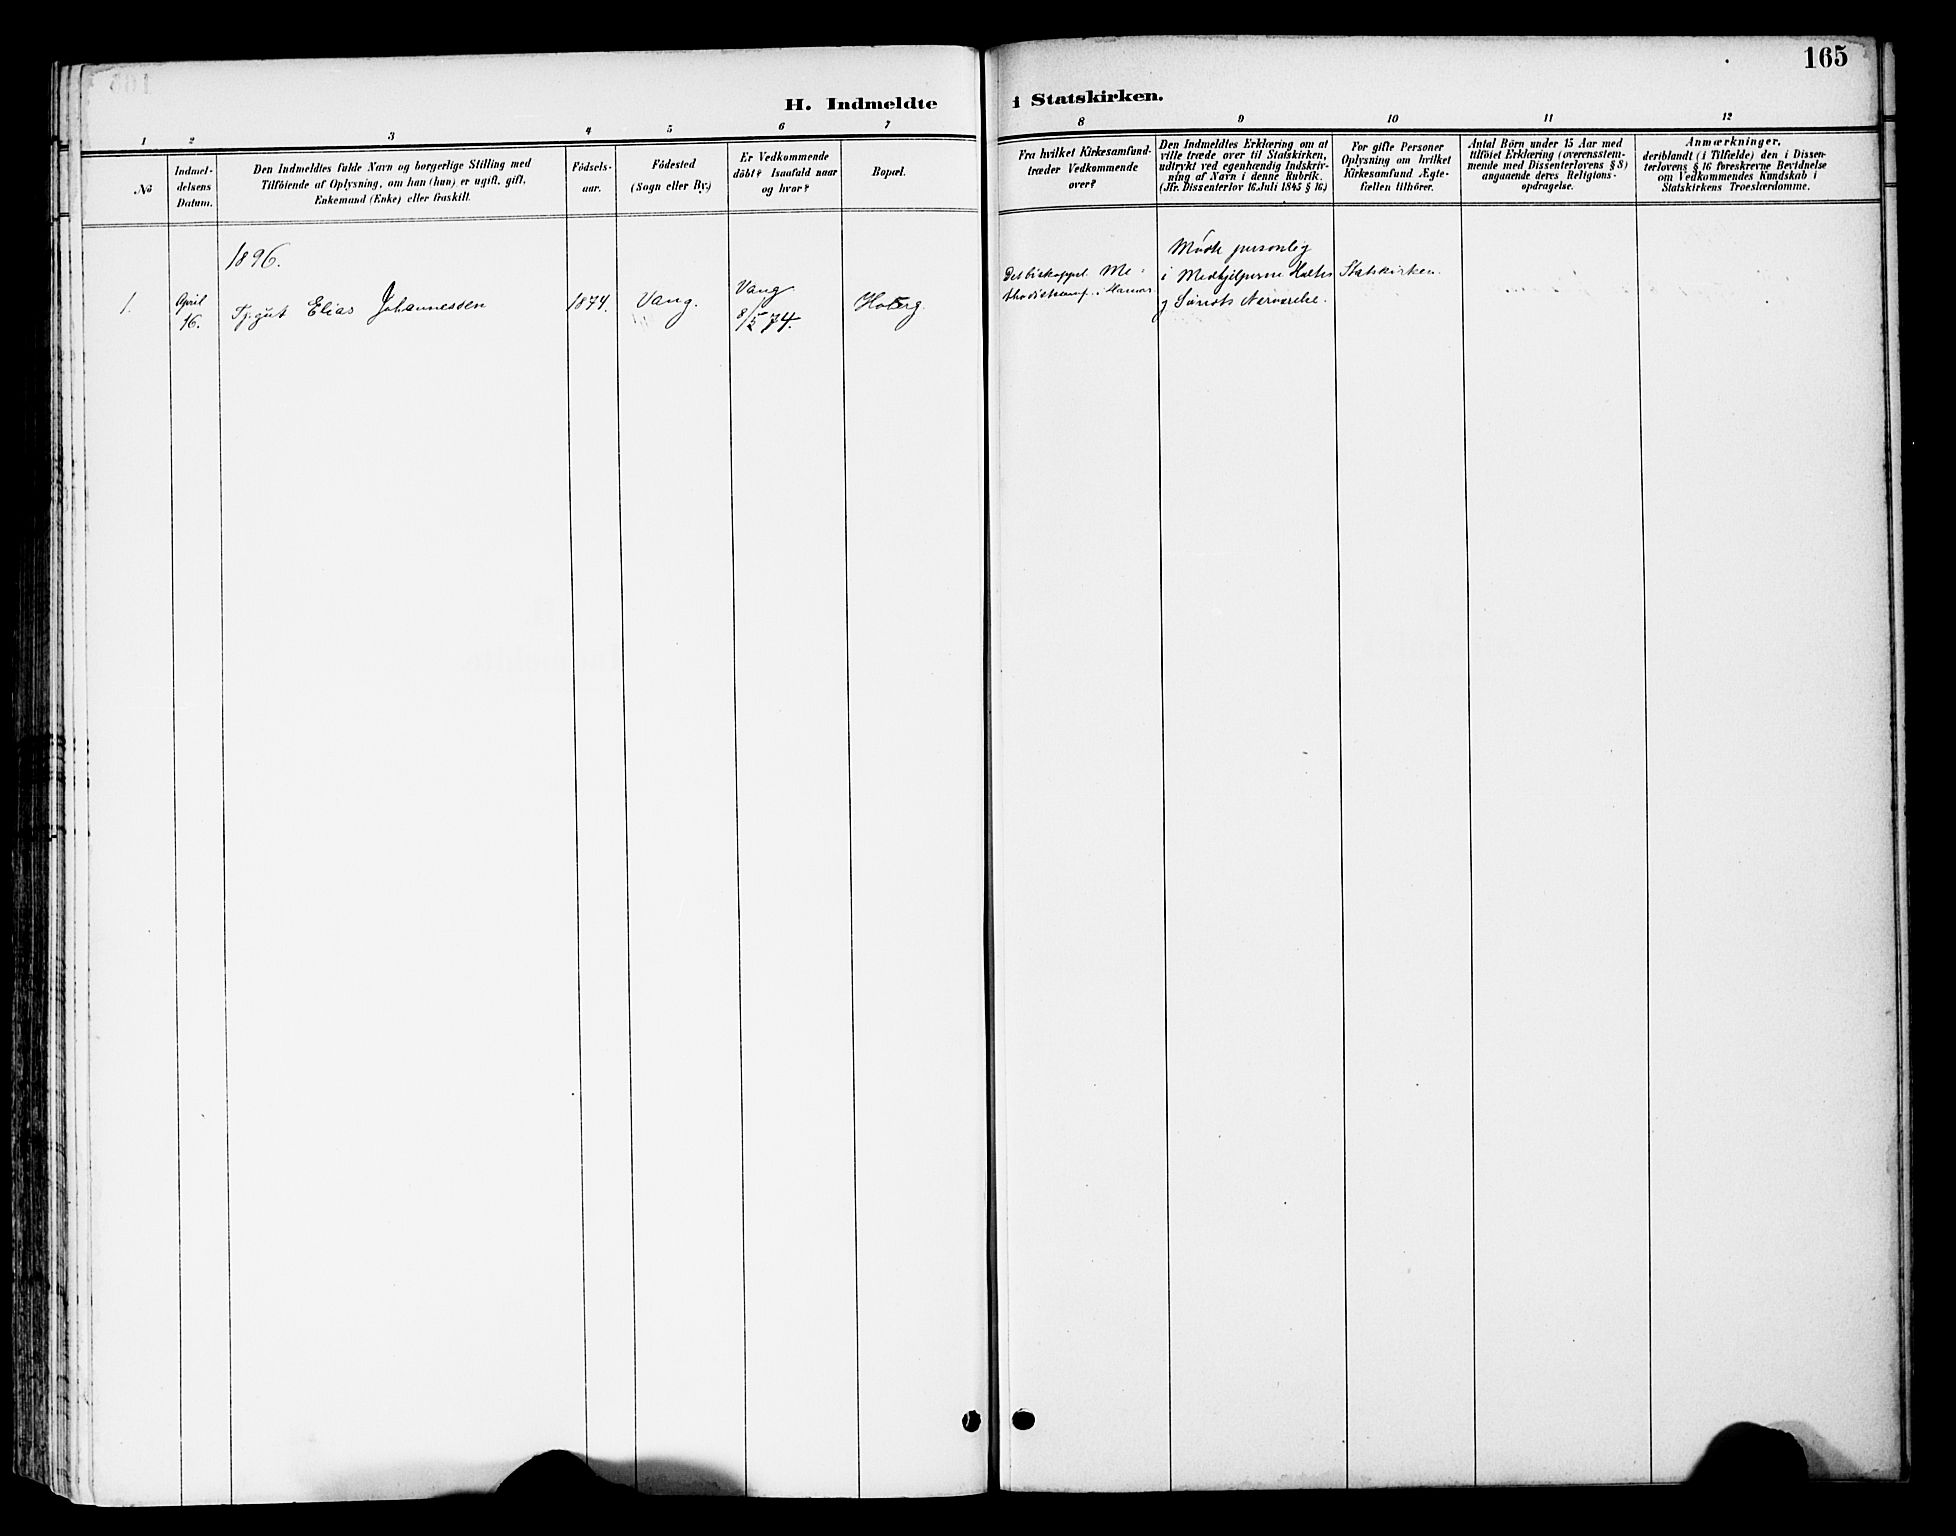 165
H. Indmeldte
i Statskirken.
1 2 3 4 5 6 7
8 9 10 11 12
No
Indmel-
delsens
Datum.
Den Indmeldtes fulde Navn og borgerlige Stilling med
Tilföiende af Oplysning, om han (hun) er ugift, gift,
Enkemand (Enke) eller fraskilt.
Födsels-
aar.
Födested
(Sogn eller By.)
Er Vedkommende
döbt? Isaafald naar
og hvor?
Bopæl.
Fra hvilket Kirkesamfund-
træder Vedkommende
over?
Den Indmeldtes Erklæring om at
ville træde over til Statskirken,
udtrykt ved egenhændig Indskriv-
ning af Navn i denne Rubrik.
(Jfr. Dissenterlov 16 Juli 1845 § 16.)
For gifte Personer
Oplysning om hvilket
Kirkesamfund Ægte-
fællen tilhörer.
Antal Börn under 15 Aar med
tilföiet Erklæring (overensstem-
mende med Dissenterlovens § 8)
angaaende deres Religions-
opdragelse.
Anmærkninger,
deriblandt (i Tilfælde) den i Dissen-
terlovens § 16 foreskrevne Bevidnelse
om Vedkommendes Kundskab i
Statskirkens Troeslærdomme.
1896.
1.
April
16.
Tj.gut Elias Johannessen
1874.
Vang.
Vang
8/5 74.
Hoberg.
Det biskoppel. Me-
thodistsamf. i Hamar.
Mødte personlig
i Medhjelperne
og Nærværelse.
Statskirken.